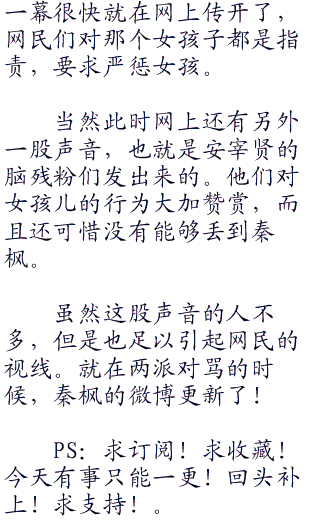 一幕很快就在网上传开了，
网民们对那个女孩子都是指
责，要求严惩女孩。
当然此时网上还有另外
一股声音，也就是安宰贤的
脑残粉们发出来的。他们对
女孩儿的行为大加赞赏，而
且还可惜没有能够丢到秦
枫。
虽然这股声音的人不
多，但是也足以引起网民的
视线。就在两派对骂的时
候，秦枫的微博更新了！
PS：求订阅！求收藏！
今天有事只能一更！回头补
上！求支持！。